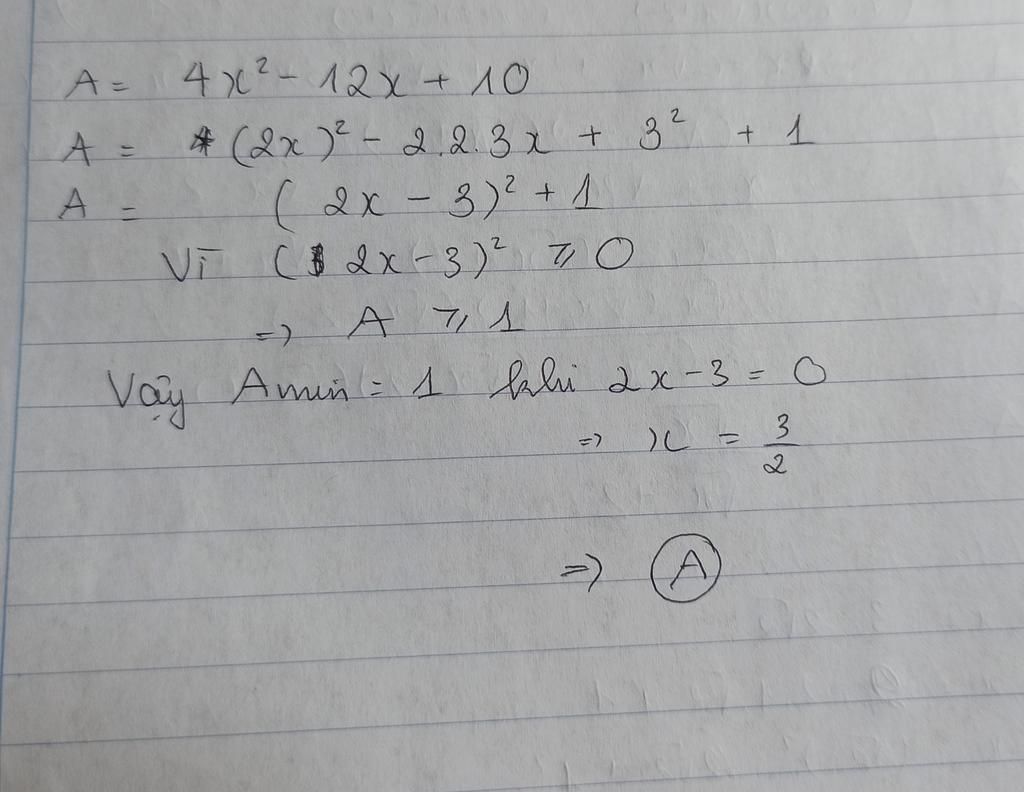 A = 4x² - 12x + 10
A = (2x)² - 2.2.3x + 3² + 1
A = (2x - 3)² + 1
Vì (2x - 3)² ⩾ 0
=> A ⩾ 1
Vậy Amin = 1 khi 2x - 3 = 0
=> x = 3/2
=> A